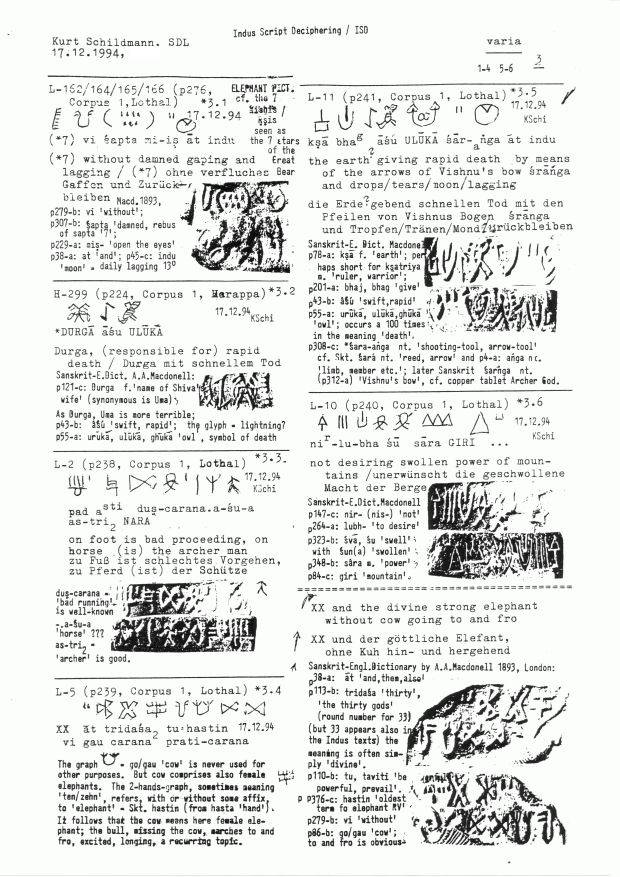 Indus Script Deciphering / ISD
Kurt Schildmann. SDL
17.12.1994,
varia
1-4 5-6 3
L-162/164/165/166 (p276,
Corpus 1,Lothal) *3.1
ELEPHANT PICT.
cf. the 7
17.12.94
seen as
the 7 stars
of the
Great
Bear
(*7) vi śapta mi-iṣ āt indu
(*7) without damned gaping and
lagging / (*7) ohne verfluches
Gaffen und Zurück-
bleiben Macd.1893,
p279-b: vi 'without';
p307-b: śapta 'damned, rebus
of sapta '7';
p229-a: miṣ- 'open the eyes'
p38-a: āt 'and'; p45-c: indu
'moon' = daily lagging 13°
H-299 (p224, Corpus 1, Harappa) *3.2
17.12.94
KSchi
*DURGĀ āśu ULŪKĀ
Durga, (responsible for) rapid
death / Durga mit schnellem Tod
Sanskrit-E.Dict. A.A.Macdonell:
p121-c: Durga f.'name of Shiva'
wife' (synonymous is Uma)
As Durga, Uma is more terrible;
p43-b: āśú 'swift, rapid'; the glyph = lightning?
p55-a: urūka, ulūka, ghūka 'owl', symbol of death
L-2 (p238, Corpus 1, Lothal) *3.3
17.12.94
KSchi
pad asti duṣ-carana.a-śu-a
as-tri2 NARA
on foot is bad proceeding, on
horse (is) the archer man
zu Fuß ist schlechtes Vorgehen,
zu Pferd (ist) der Schütze
duṣ-carana =
'bad running'
is well-known
-.a-śu-a
'horse' ???
as-tri2 =
'archer' is good.
L-5 (p239, Corpus 1, Lothal) *3.4
XX āt tridaśa2 tu-hastin 17.12.94
vi gau carana prati-carana
The graph = go/gau 'cow' is never used for
other purposes. But cow comprises also female
elephants. The 2-hands-graph, sometimes meaning
'ten/zehn', refers, with or without some affix,
to 'elephant' = Skt. hastin (from hasta 'hand').
It follows that the cow means here female ele-
phant; the bull, missing the cow, marches to and
fro, excited, longing, a recurring topic.
L-11 (p241, Corpus 1, Lothal) *3.5
17.12.94
KSchi
kṣā bhag āśú ULŪKĀ śār-aṅga āt indu
the earth?giving rapid death by means
of the arrows of Vishnu's bow śrāṅga
and drops/tears/moon/lagging
die Erde?gebend schnellen Tod mit den
Pfeilen von Vishnus Bogen śraṅga
und Tropfen/Tränen/Mond/Zurückbleiben
Sanskrit-E. Dict. Macdonel
p78-a: kṣā f. 'earth'; per
haps short for kṣatriya
m. 'ruler, warrior';
p201-a: bhaj, bhag 'give'
p43-b: āśú 'swift,rapid'
p55-a: urūka, ulūka,ghūka
'owl'; occurs a 100 times
in the meaning 'death'.
p308-c: *śara-aṅga nt. 'shooting-tool, arrow-tool'
cf. Skt. śara nt. 'reed, arrow' and p4-a: aṅga nt.
'limb, member etc.'; later Sanskrit śarṅga nt.
(p312-a) 'Vishnu's bow', cf. copper tablet Archer God.
L-10 (p240, Corpus 1, Lothal) *3.6
17.12.94
KSchi
nir-lu-bha śū sāra GIRI ...
not desiring swollen power of moun-
tains /unerwünscht die geschwollene
Macht der Berge
Sanskrit-E.Dict.Macdonell
p147-c: nir- (nis-) 'not'
p264-a: lubh- 'to desire'
p323-b: śvā, śu 'swell'
with śun(a) 'swollen'
p348-b: sāra m. 'power'
p84-c: giri 'mountain'.
XX and the divine strong elephant
without cow going to and fro
XX und der göttliche Elefant,
ohne Kuh hin- und hergehend
Sanskrit-Engl.Dictionary by A.A.Macdonell 1893, London:
p38-a: āt 'and,them,also'
p113-b: tridaśa 'thirty',
'the thirty gods'
(round number for 33)
(but 33 appears also in
the Indus texts) the
meaning is often sim-
ply 'divine'.
p110-b: tu, tavīti 'be
powerful, prevail'.
p376-c: hastin 'oldest
term fo elephant RV'
p279-b: vi 'without'
p86-b: go/gau 'cow';
to and fro is obvious